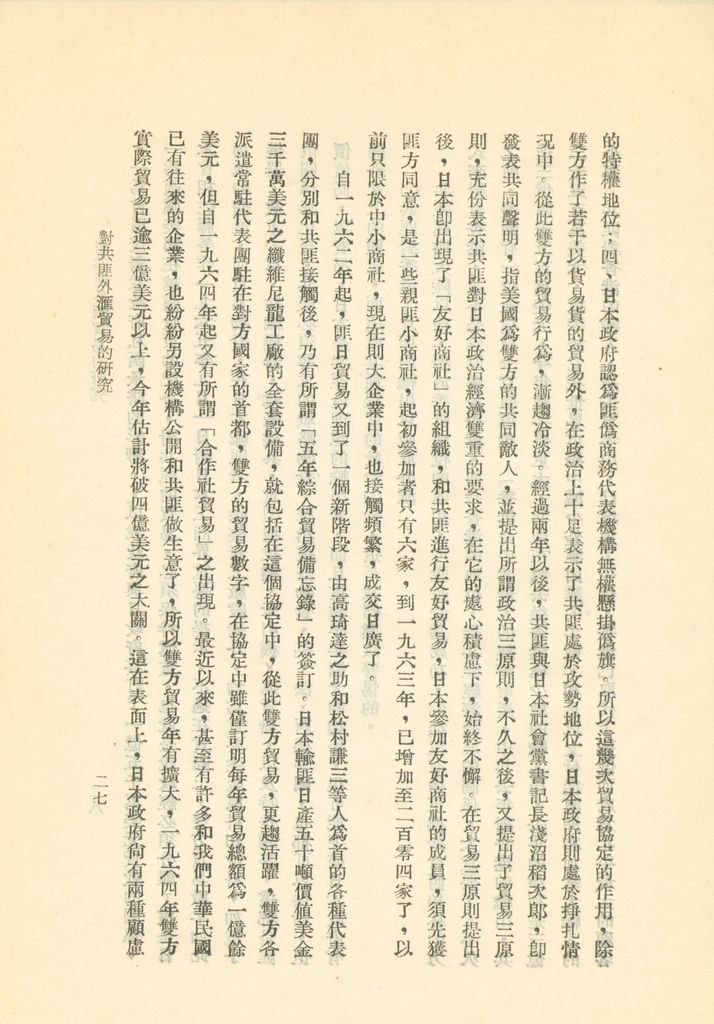 的特權地位；四、日本政府認爲匪僞商務代表機構無權懸掛僞旗。所以這幾次貿易協定的作用，除
雙方作了若干以貨易貨的貿易外，在政治上十足表示了共匪處於攻勢地位，日本政府則處於掙扎情
況中。從此雙方的貿易行爲，漸趨冷淡。經過兩年以後，共匪與日本社會黨書記長淺沼稻次郎，卽
發表共同聲明，指美國爲雙方的共同敵人，並提出所謂政治三原則，不久之後，又提出了貿易三原
則，充份表示共匪對日本政治經濟雙重的要求，在它的處心積慮下，始終不懈。在貿易三原則提出
後，日本卽出現了「友好商社」的組織，和共匪進行友好貿易，日本參加友好商社的成員，須先獲
匪方同意，是一些親匪小商社，起初參加者只有六家，到一九六三年，已增加至二百零四家了，以
前只限於中小商社，現在則大企業中，也接觸頻繁，成交日廣了。
自一九六二年起，匪日貿易又到了一個新階段，由高琦達之助和松村謙三等人爲首的各種代表
團，分別和共匪接觸後，乃有所謂「五年綜合貿易備忘錄」的簽訂。日本輸匪日產五十噸價值美金
三千萬美元之纖維尼龍工廠的全套設備，就包括在這個協定中，從此雙方貿易，更趨活躍，雙方各
派遣常駐代表團駐在對方國家的首都，雙方的貿易數字，在協定中雖僅訂明每年貿易總額爲一億餘
美元，但自一九六四年起又有所謂「合作社貿易」之出現。最近以來，甚至有許多和我們中華民國
已有往來的企業，也紛紛另設機構公開和共匪做生意了，所以雙方貿易年有擴大，一九六四年雙方
實際貿易已逾三億美元以上，今年估計將破四億美元之大關。這在表面上，日本政府尙有兩種顧慮
對共匪外滙貿易的研究
二七